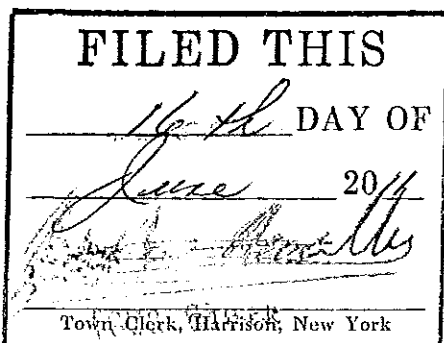 FILED THIS
16th DAY OF
June 20
Town Clerk, Harrison, New York